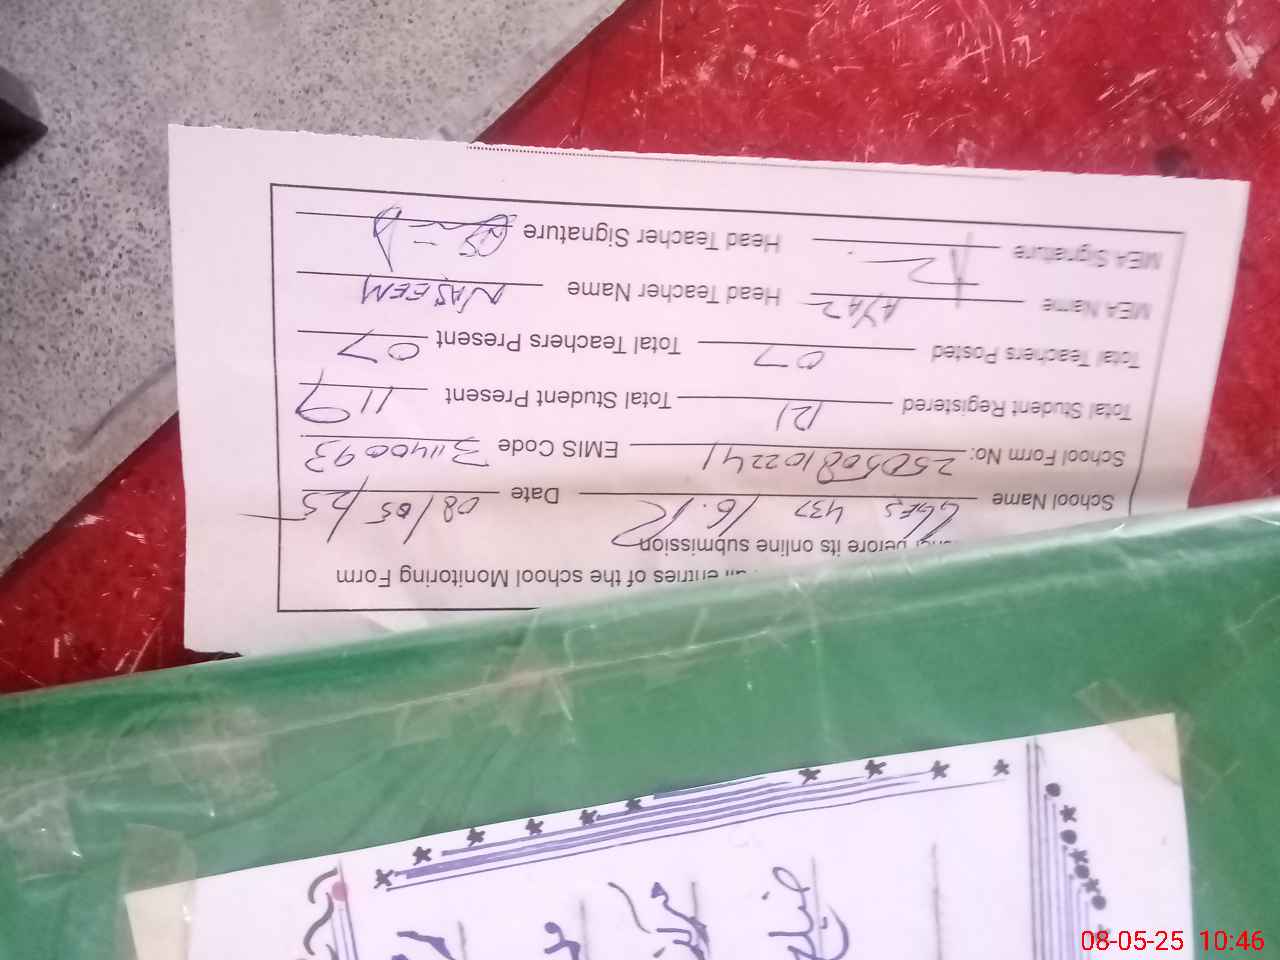 entries of the school Monitoring Form
before its online submission
School Name GGES 437 16.R Date 08/05/25
School Form No: 250508102241 EMIS Code 31140093
Total Student Registered 121 Total Student Present 119
Total Teachers Posted 07 Total Teachers Present 07
MEA Name AYAZ Head Teacher Name NASEEM
MEA Signature Head Teacher Signature
08-05-25 10:46